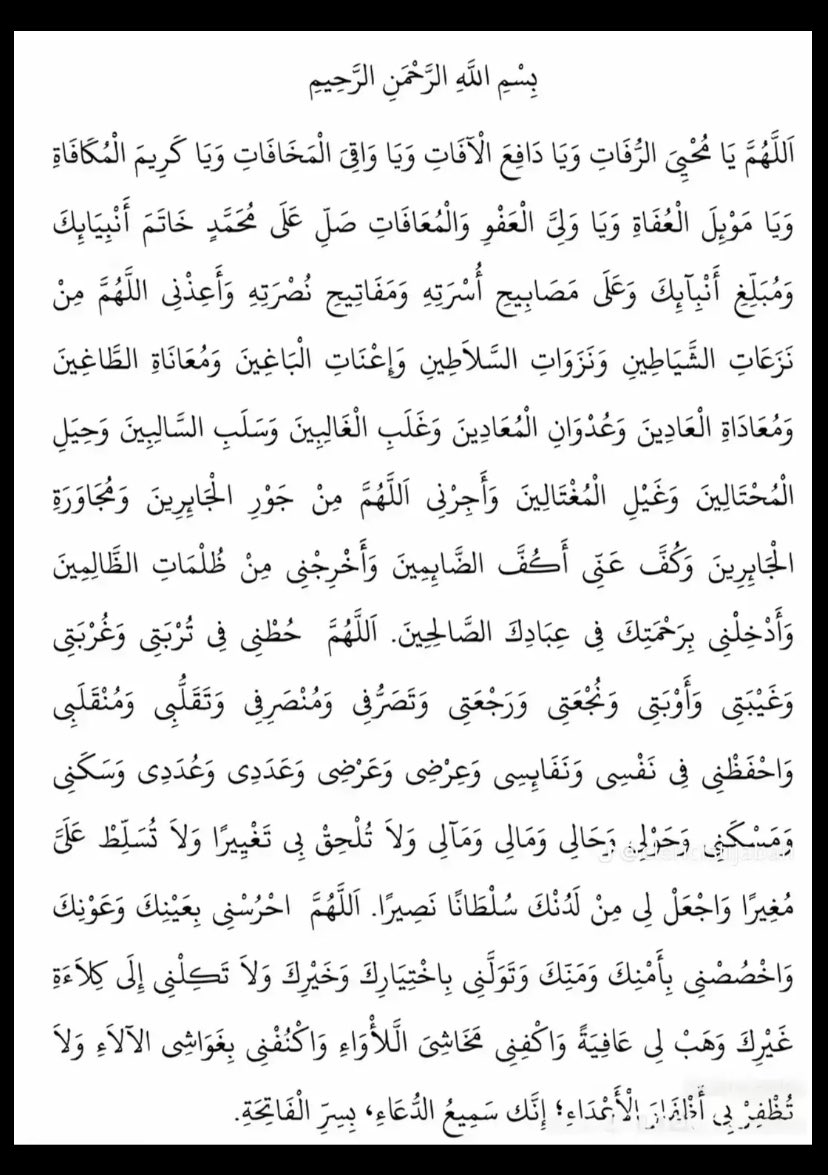 بِسْمِ اللَّهِ الرَّحْمَنِ الرَّحِيمِ
اَللَّهُمَّ يَا مُحْيِيَ الرُّفَاتِ وَيَا دَافِعَ الْآفَاتِ وَيَا وَاقِيَ الْمَخَافَاتِ وَيَا كَرِيمَ الْمُكَافَاةِ
وَيَا مَوْئِلَ الْعُفَاةِ وَيَا وَلِيَّ الْعَفْوِ وَالْمُعَافَاتِ صَلِّ عَلَى مُحَمَّدٍ خَاتَمَ أَنْبِيَايِكَ
وَمُبَلِّغِ أَنْبِآئِكَ وَعَلَى مَصَابِيحِ أُسْرَتِهِ وَمَفَاتِيحِ نُصْرَتِهِ وَأَعِذْنِى اللَّهُمَّ مِنْ
نَزَعَاتِ الشَّيَاطِينِ وَنَزَوَاتِ السَّلاَطِينِ وَإِعْنَاتِ الْبَاغِينَ وَمُعَانَاةِ الطَّاغِينَ
وَمُعَادَاةِ الْعَادِينَ وَعُدْوَانِ الْمُعَادِينَ وَغَلَبِ الْغَالِبِينَ وَسَلَبِ السَّالِبِينَ وَحِيَلِ
الْمُحْتَالِينَ وَغَيْلِ الْمُغْتَالِينَ وَأَجِرْنِى اَللَّهُمَّ مِنْ جَوْرِ الْجَايِرِينَ وَمُجَاوَرَةِ
الْجَايِرِينَ وَكُفَّ عَنِّى أَكُفَّ الضَّايِمِينَ وَأَخْرِجْنِى مِنْ ظُلْمَاتِ الظَّالِمِينَ
وَأَدْخِلْنِى بِرَحْمَتِكَ فِى عِبَادِكَ الصَّالِحِينَ. اَللَّهُمَّ حُطْنِى فِى تُرْبَتِى وَغُرْبَتِى
وَغَيْبَتِى وَأَوْبَتِى وَنُجْعَتِى وَرَجْعَتِى وَتَصَرُّفِى وَمُنْصَرِفِى وَتَقَلُّبِى وَمُنْقَلَبِى
وَاحْفَظْنِى فِى نَفْسِى وَنَفَايِسِى وَعِرْضِى وَعَرْضِى وَعَدَدِى وَعُدَدِى وَسَكَنِى
وَمَسْكَنِى وَحَوْلِى وَحَالِى وَمَالِى وَمَآلِى وَلاَ تُلْحِقْ بِى تَغْيِيرًا وَلاَ تُسَلِّطْ عَلَىَّ
مُغِيرًا وَاجْعَلْ لِى مِنْ لَدُنْكَ سُلْطَانًا نَصِيرًا. اَللَّهُمَّ احْرُسْنِى بِعَيْنِكَ وَعَوْنِكَ
وَاخْصُصْنِى بِأَمْنِكَ وَمَنِّكَ وَتَوَلَّنِى بِاخْتِيَارِكَ وَخَيْرِكَ وَلاَ تَكِلْنِى إِلَى كِلاَءَةِ
غَيْرِكَ وَهَبْ لِى عَافِيَةً وَاكْفِنِى مَخَاشِىَ الَّلأْوَاءِ وَاكْنُفْنِى بِغَوَاشِى الآلاَءِ وَلاَ
تُظْفِرْ بِى أَظْفَارَ الْأَعْدَاءِ؛ إِنَّك سَمِيعُ الدُّعَاءِ، بِسِرِّ الْفَاتِحَةِ.